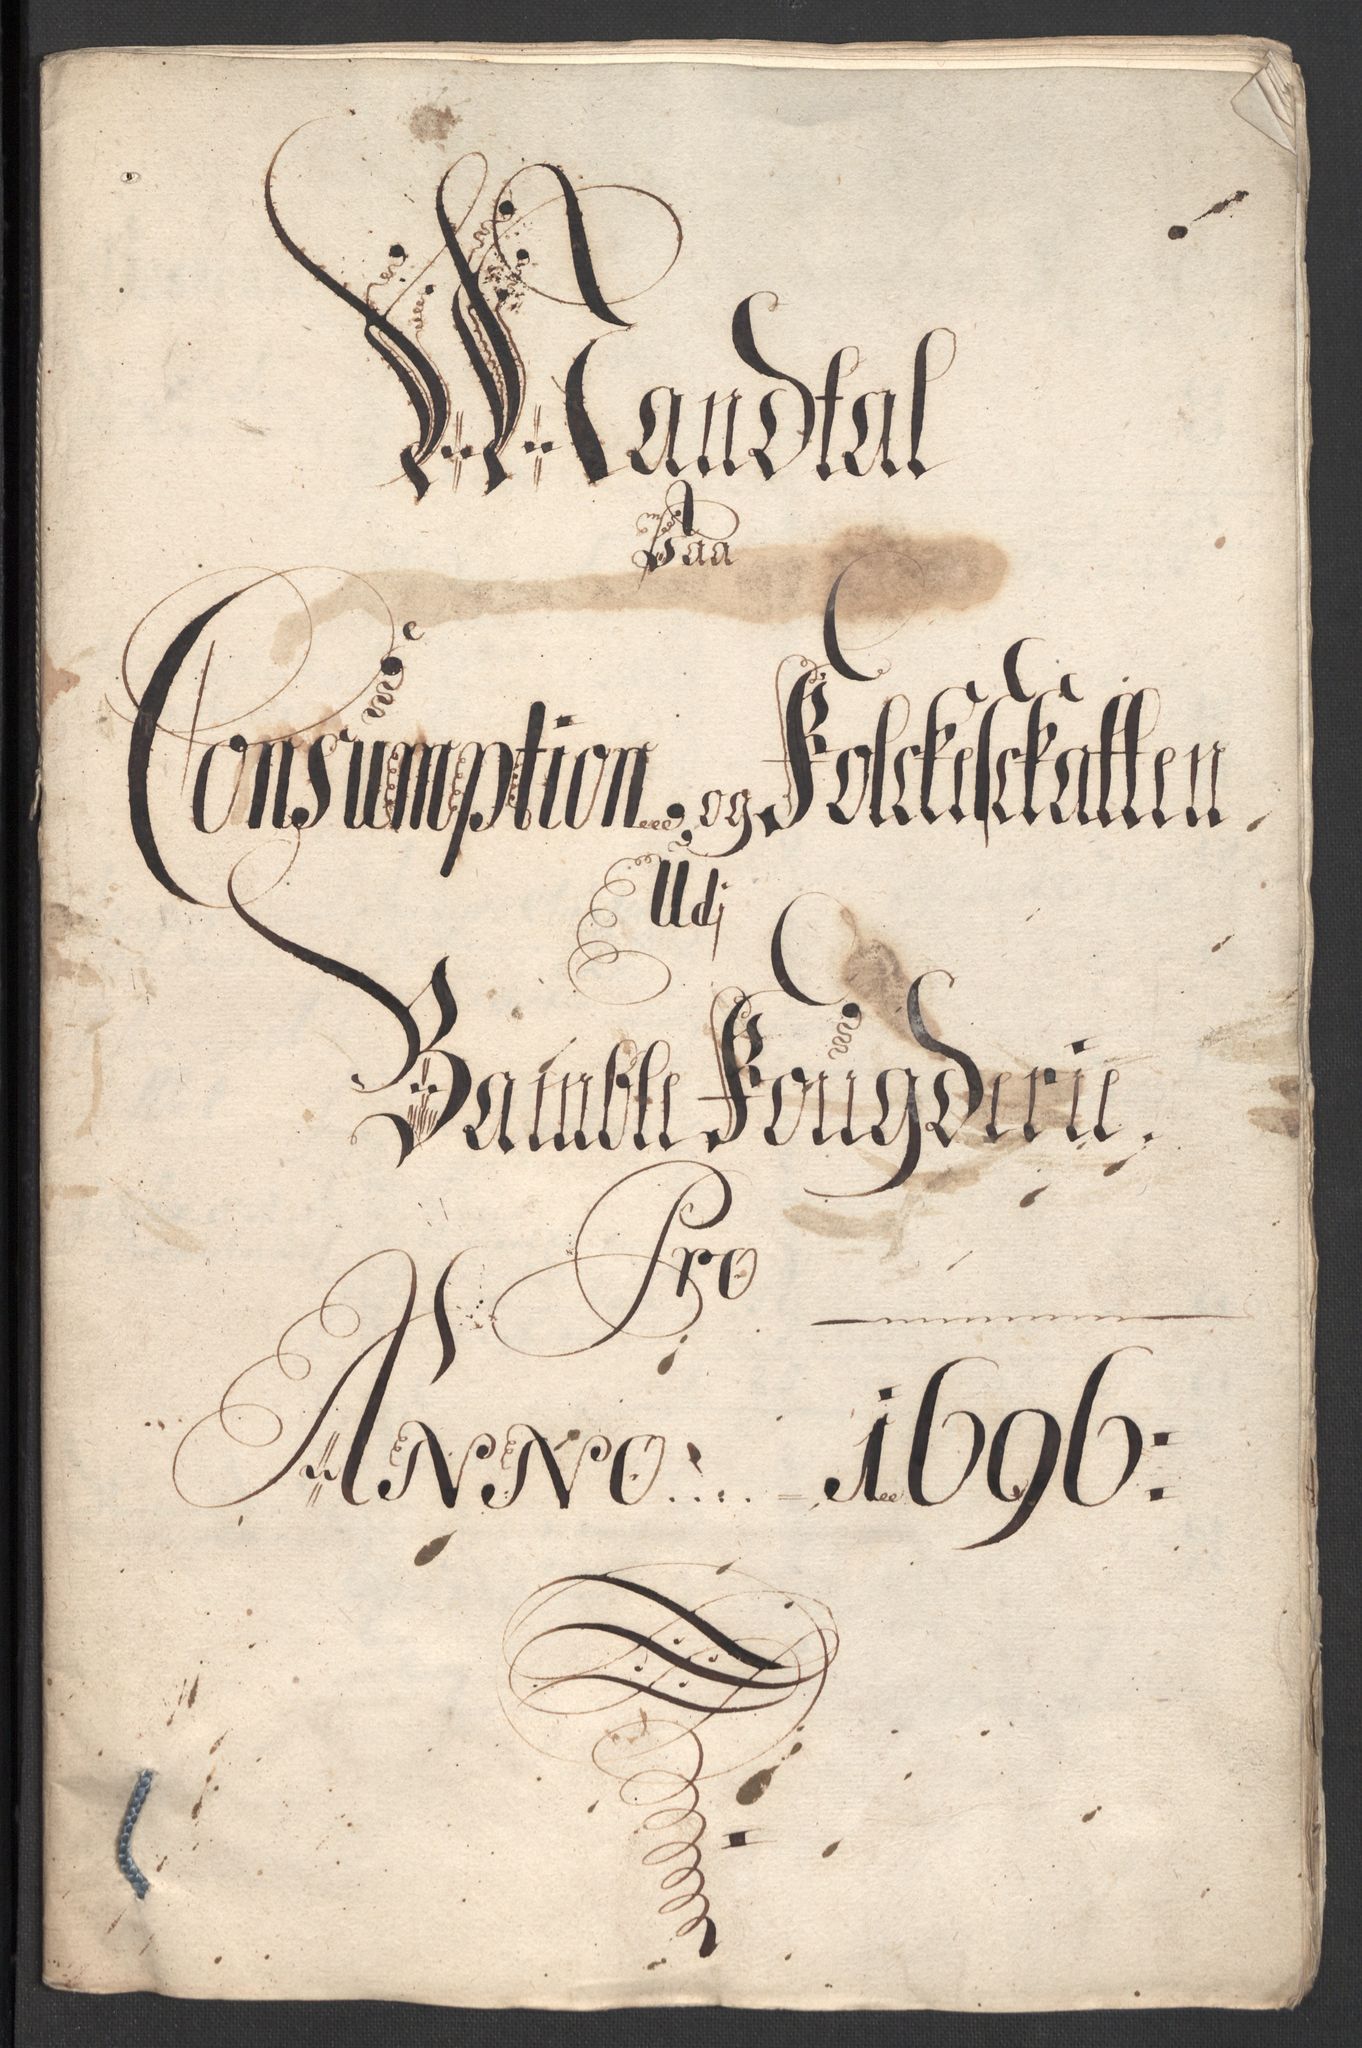 Mandtal
Paa
Consumption og Folckeskatten
Udj
Bamble Fougderie.
Pro
ANNO: 1696: